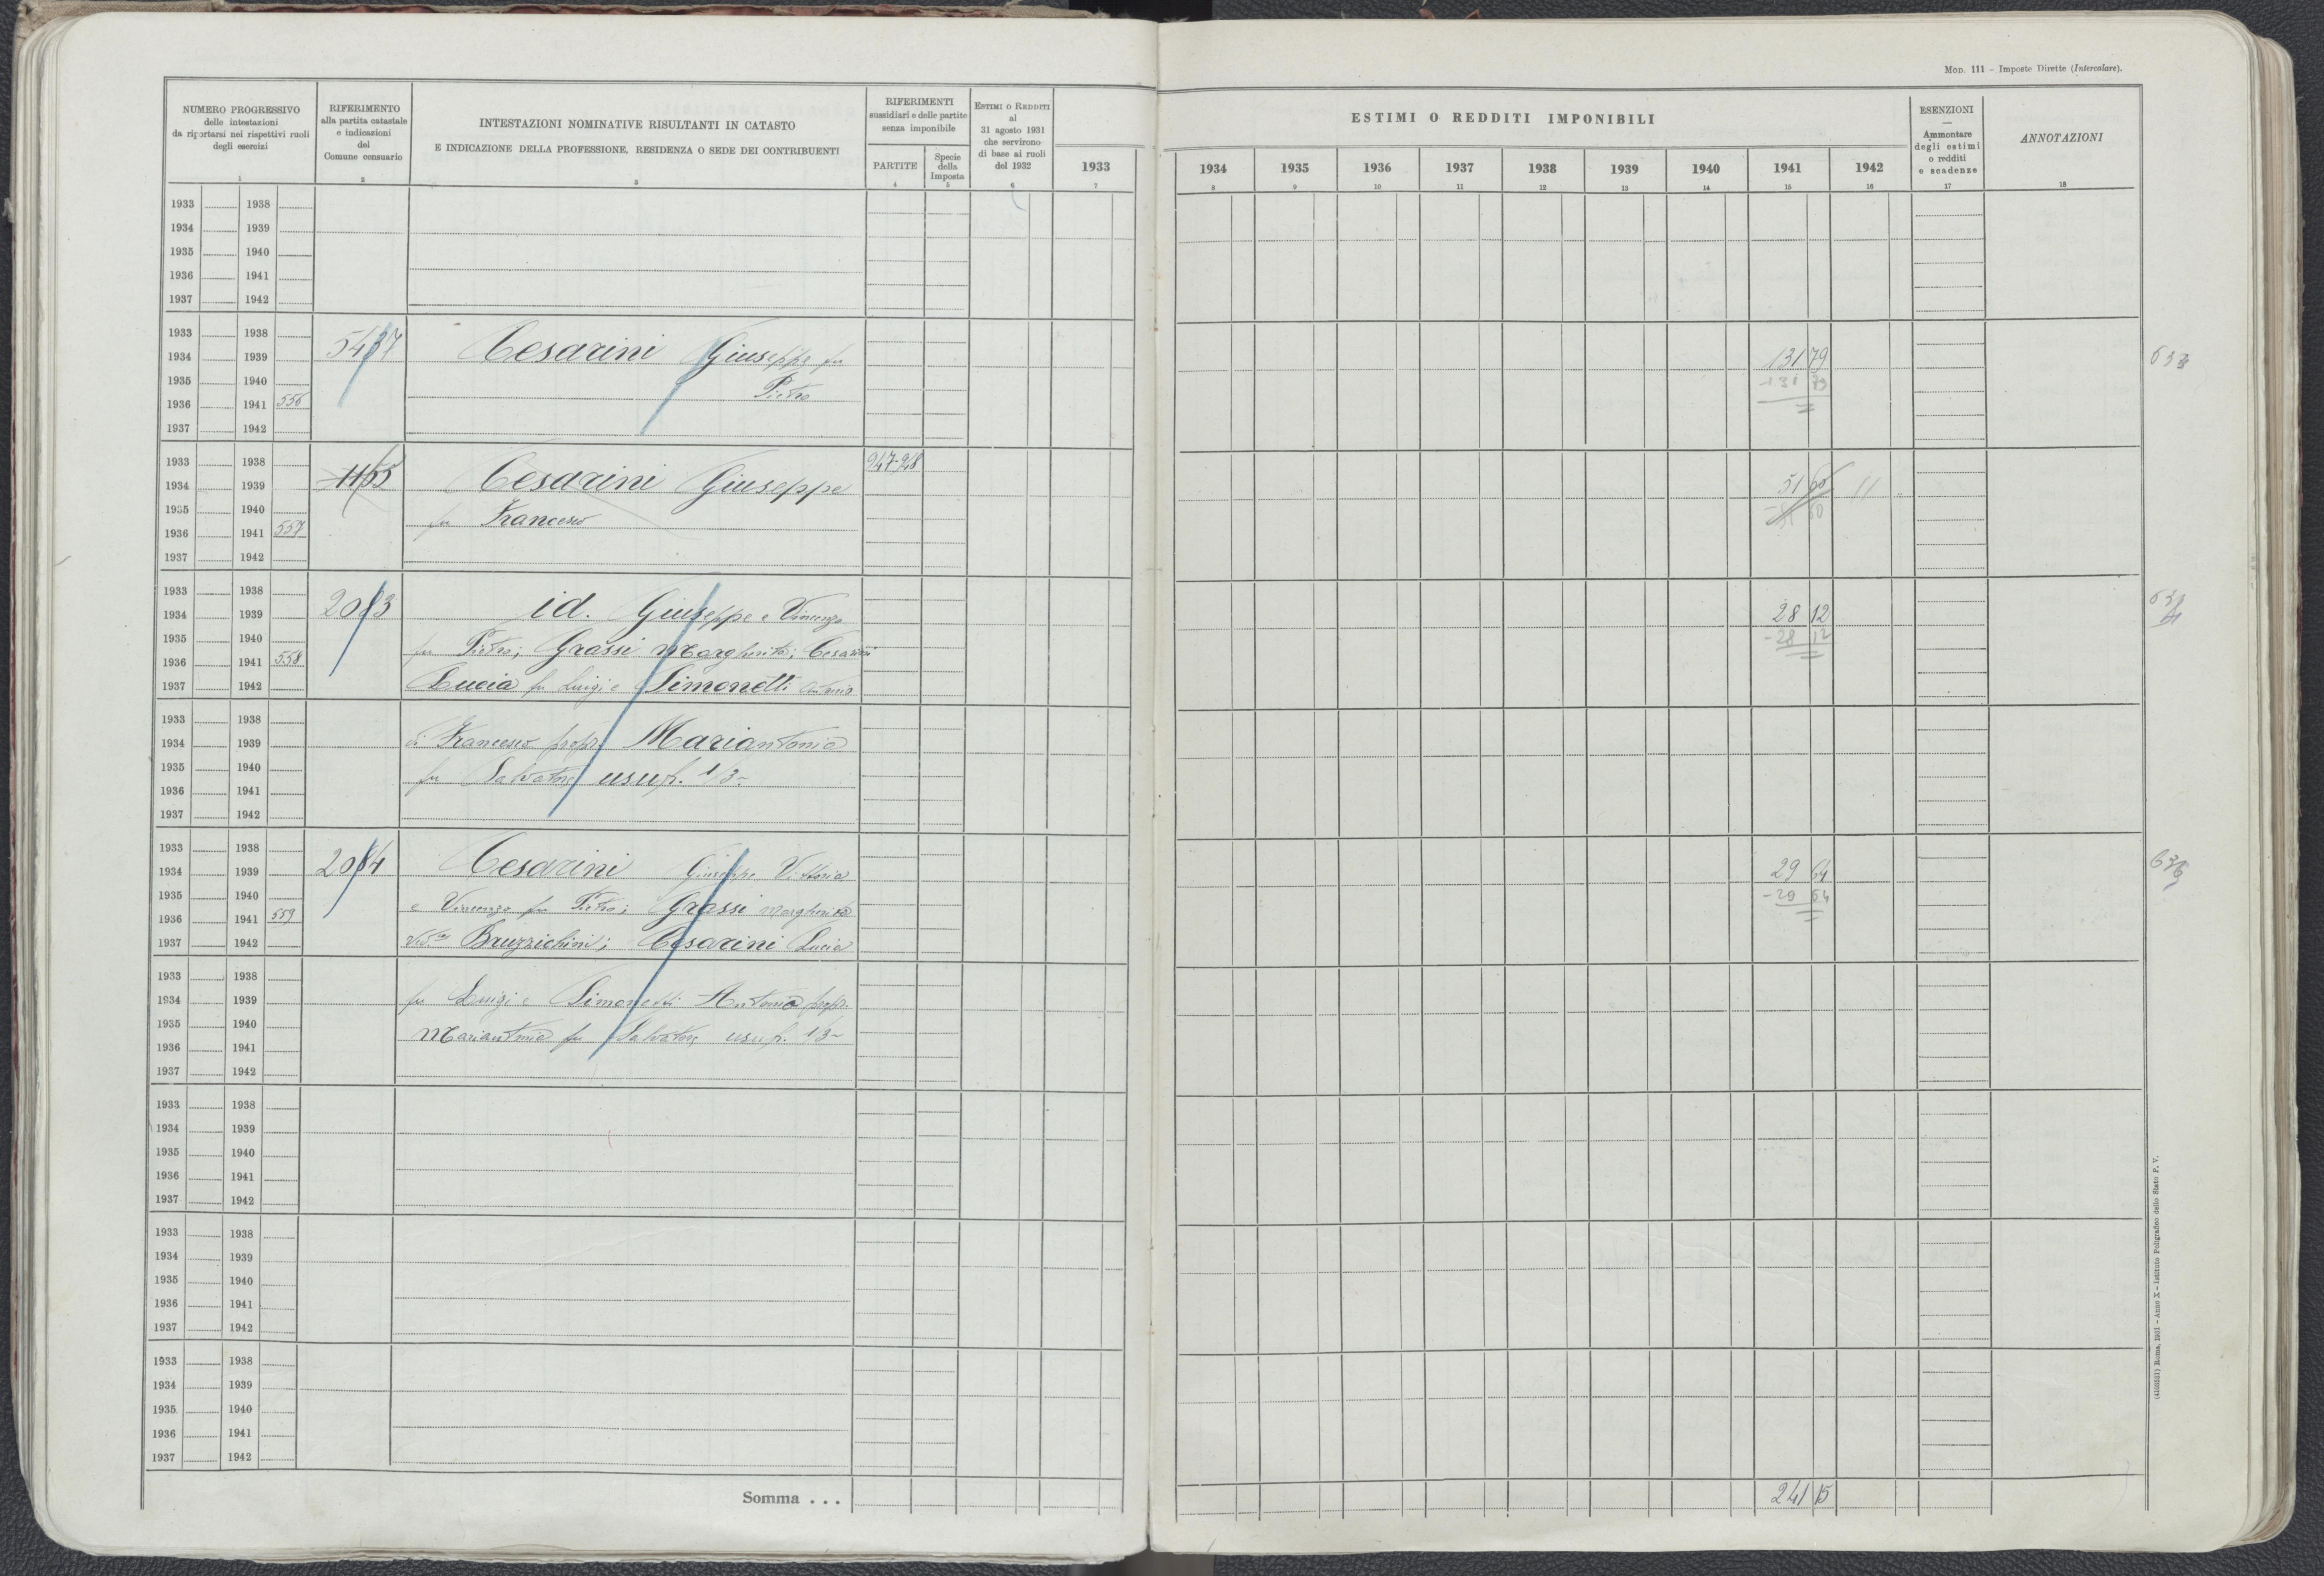 MOD. 111 – Imposte Dirette (Intercalare).
NUMERO PROGRESSIVO
delle intestazioni
da riportarsi nei rispettivi ruoli
degli esercizi
1
RIFERIMENTO
alla partita catastale
e indicazioni
del
Comune censuario
2
INTESTAZIONI NOMINATIVE RISULTANTI IN CATASTO
E INDICAZIONE DELLA PROFESSIONE, RESIDENZA O SEDE DEI CONTRIBUENTI
3
RIFERIMENTI
sussidiari e delle partite
senza imponibile
PARTITE
4
Specie
della
Imposta
5
ESTIMI O REDDITI
al
31 agosto 1931
che servirono
di base ai ruoli
del 1932
6
1933
7
ESTIMI O REDDITI IMPONIBILI
1934 1935 1936 1937 1938 1939 1940 1941 1942
8 9 10 11 12 13 14 15 16
ESENZIONI
—
Ammontare
degli estimi
o redditi
e scadenze
17
ANNOTAZIONI
18
1933 1938
1934 1939
1935 1940
1936 1941
1937 1942
1933 1938
5437 Cesarini Giuseppe fu 131 79
1934 1939
Pietro -131 79
1935 1940
1936 1941 556
1937 1942
1933 1938 947-948
1165 Cesarini Giuseppe 51 60
1934 1939
1935 1940
fu Francesco -51 60
1936 1941 557
1937 1942
1933 1938
2083 id. Giuseppe e Vincenzo 28 12
1934 1939
1935 1940
fu Pietro; Grassi Margherita; Cesarini -28 12
1936 1941 558
Lucia fu Luigi e Simonetti Antonia
1937 1942
1933 1938
di Francesco propr. Mariantonia
1934 1939
1935 1940
fu Salvatore usuf. 1/3-
1936 1941
1937 1942
1933 1938
2084 Cesarini Giuseppe, Vittoria 29 64
1934 1939
1935 1940
e Vincenzo fu Pietro; Grassi Margherita -29 64
1936 1941 559
Bruzzichini; Cesarini Lucia
1937 1942
1933 1938
fu Luigi e Simonetti Antonia propr.
1934 1939
1935 1940
Mariantonia fu Salvatore usuf. 1/3-
1936 1941
1937 1942
1933 1938
1934 1939
1935 1940
1936 1941
1937 1942
1933 1938
1934 1939
1935 1940
1936 1941
1937 1942
1933 1938
1934 1939
1935 1940
1936 1941
1937 1942
Somma . . . 241 15
(4100351) Roma, 1931 – Anno X – Istituto Poligrafico dello Stato P. V.